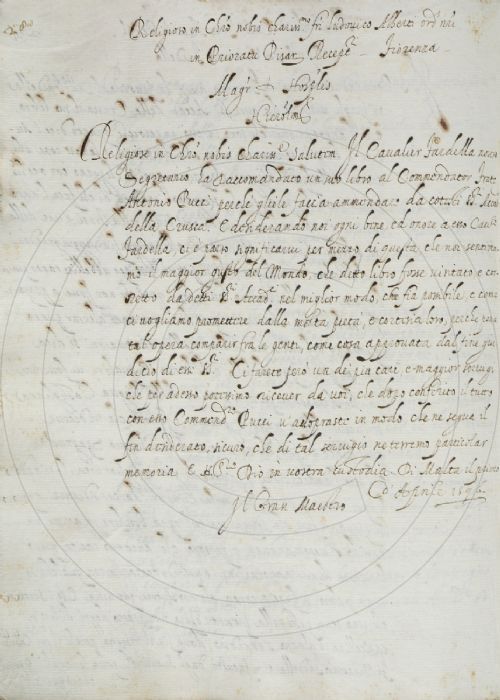 Religioso in Chr̃o nobis charissᵒ fr̃i Ludovico Alberti ord. nr̃i
in Prioratu Pisar. Recepʳ Fiorenza
Magʳ Hospˡⁱˢ
Hierosolⁱ
Religiose in Chr̃o nobis charissᵉ salutem. Il Cavalier Jardella nostro
Segretario ha raccomandato un suo libro al Commendator frat
Antonio Pucci, perche gliele faccia ammendare da cotesti SSʳⁱ Acca
della Crusca. E desiderando noi ogni bene, ed onore a esso Cavʳ
Jardella, ci è parso significarvi per mezzo di questa, che noi sentire
mo il maggior gusto del Mondo, che ditto libro fosse visitato e cor
retto da detti SSʳⁱ Accadᶜⁱ nel miglior modo, che sia possibile, e come
ci vogliamo promettere dalla molta pietà, e cortesia loro, perche possa
tal opera comparir fra le genti, come cosa approvata dal fine giu
dicio di essi SSʳⁱ Ci farete però un de' più cari, e maggior servigi,
che per adesso potessimo ricever da voi, che dopo conferito il tutto
con esso Commendʳᵉ Pucci v'adopraste in modo che ne segua il
fin desiderato, sicuro, che di tal servigio ne terremo particolar
memoria E N. Sʳᵉ Dio in vostra custodia Di Malta il primo
d'Aprile 1596
Il Gran Maestro